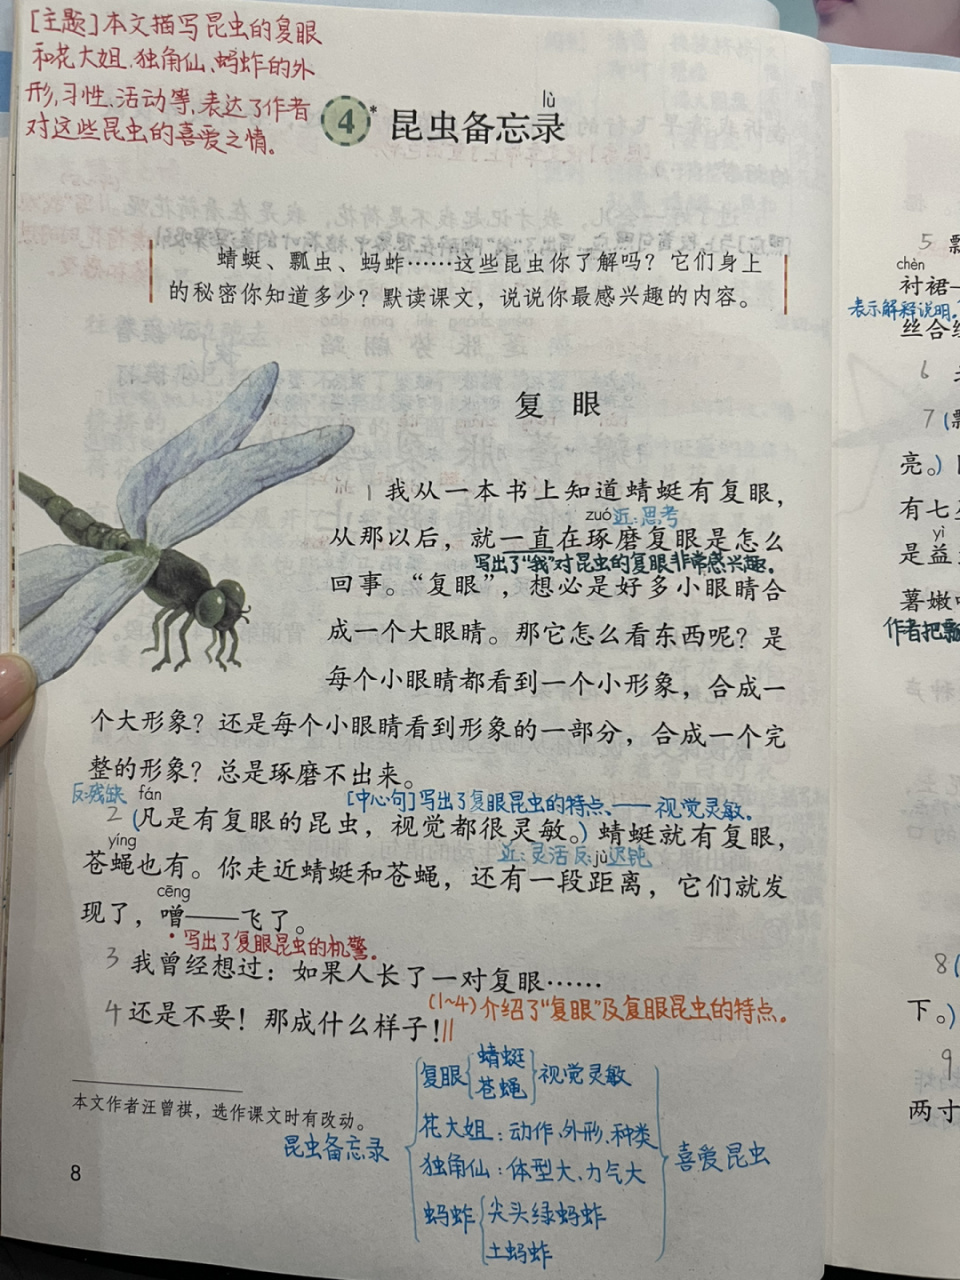 [主题]本文描写昆虫的复眼
和花大姐、独角仙、蚂蚱的外
形、习性、活动等,表达了作者
对这些昆虫的喜爱之情。
lù
4* 昆虫备忘录
蜻蜓、瓢虫、蚂蚱……这些昆虫你了解吗？它们身上
的秘密你知道多少？默读课文，说说你最感兴趣的内容。
复 眼
1 我从一本书上知道蜻蜓有复眼，
zuó 近:思考
从那以后，就一直在琢磨复眼是怎么
写出了"我"对昆虫的复眼非常感兴趣。
回事。“复眼”，想必是好多小眼睛合
成一个大眼睛。那它怎么看东西呢？是
每个小眼睛都看到一个小形象，合成一
个大形象？还是每个小眼睛看到形象的一部分，合成一个完
整的形象？总是琢磨不出来。
反:残缺 fán [中心句]写出了复眼昆虫的特点、——视觉灵敏。
2 (凡是有复眼的昆虫，视觉都很灵敏。)蜻蜓就有复眼，
yíng 近:灵活 反:迟钝
jù
苍蝇也有。你走近蜻蜓和苍蝇，还有一段距离，它们就发
cēng
现了，噌——飞了。
·写出了复眼昆虫的机警。
3 我曾经想过：如果人长了一对复眼……
(1~4)介绍了"复眼"及复眼昆虫的特点。
4 还是不要！那成什么样子！//
本文作者汪曾祺，选作课文时有改动。
昆虫备忘录
复眼 蜻蜓 苍蝇 视觉灵敏
花大姐:动作、外形、种类
独角仙:体型大、力气大
蚂蚱 尖头绿蚂蚱
土蚂蚱
喜爱昆虫
8
5
chèn
衬裙一
表示解释说明。
丝合缝
6
7 (
亮。)
有七
yì
是益
薯嫩
作者把瓢
8 (
下。)
9
两寸